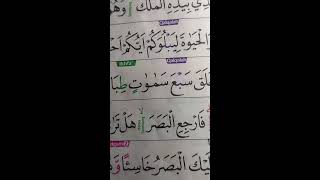 ذِي بِيَدِهِ الْمُلْكُ وَهُوَ
الْحَيَوٰةَ لِيَبْلُوَكُمْ اَيُّكُمْ اَحْ
خَلَقَ سَبْعَ سَمٰوٰتٍ طِبَا
فَارْجِعِ الْبَصَرَ هَلْ تَرٰ
لَيْكَ الْبَصَرُ خَاسِئًا وَّ